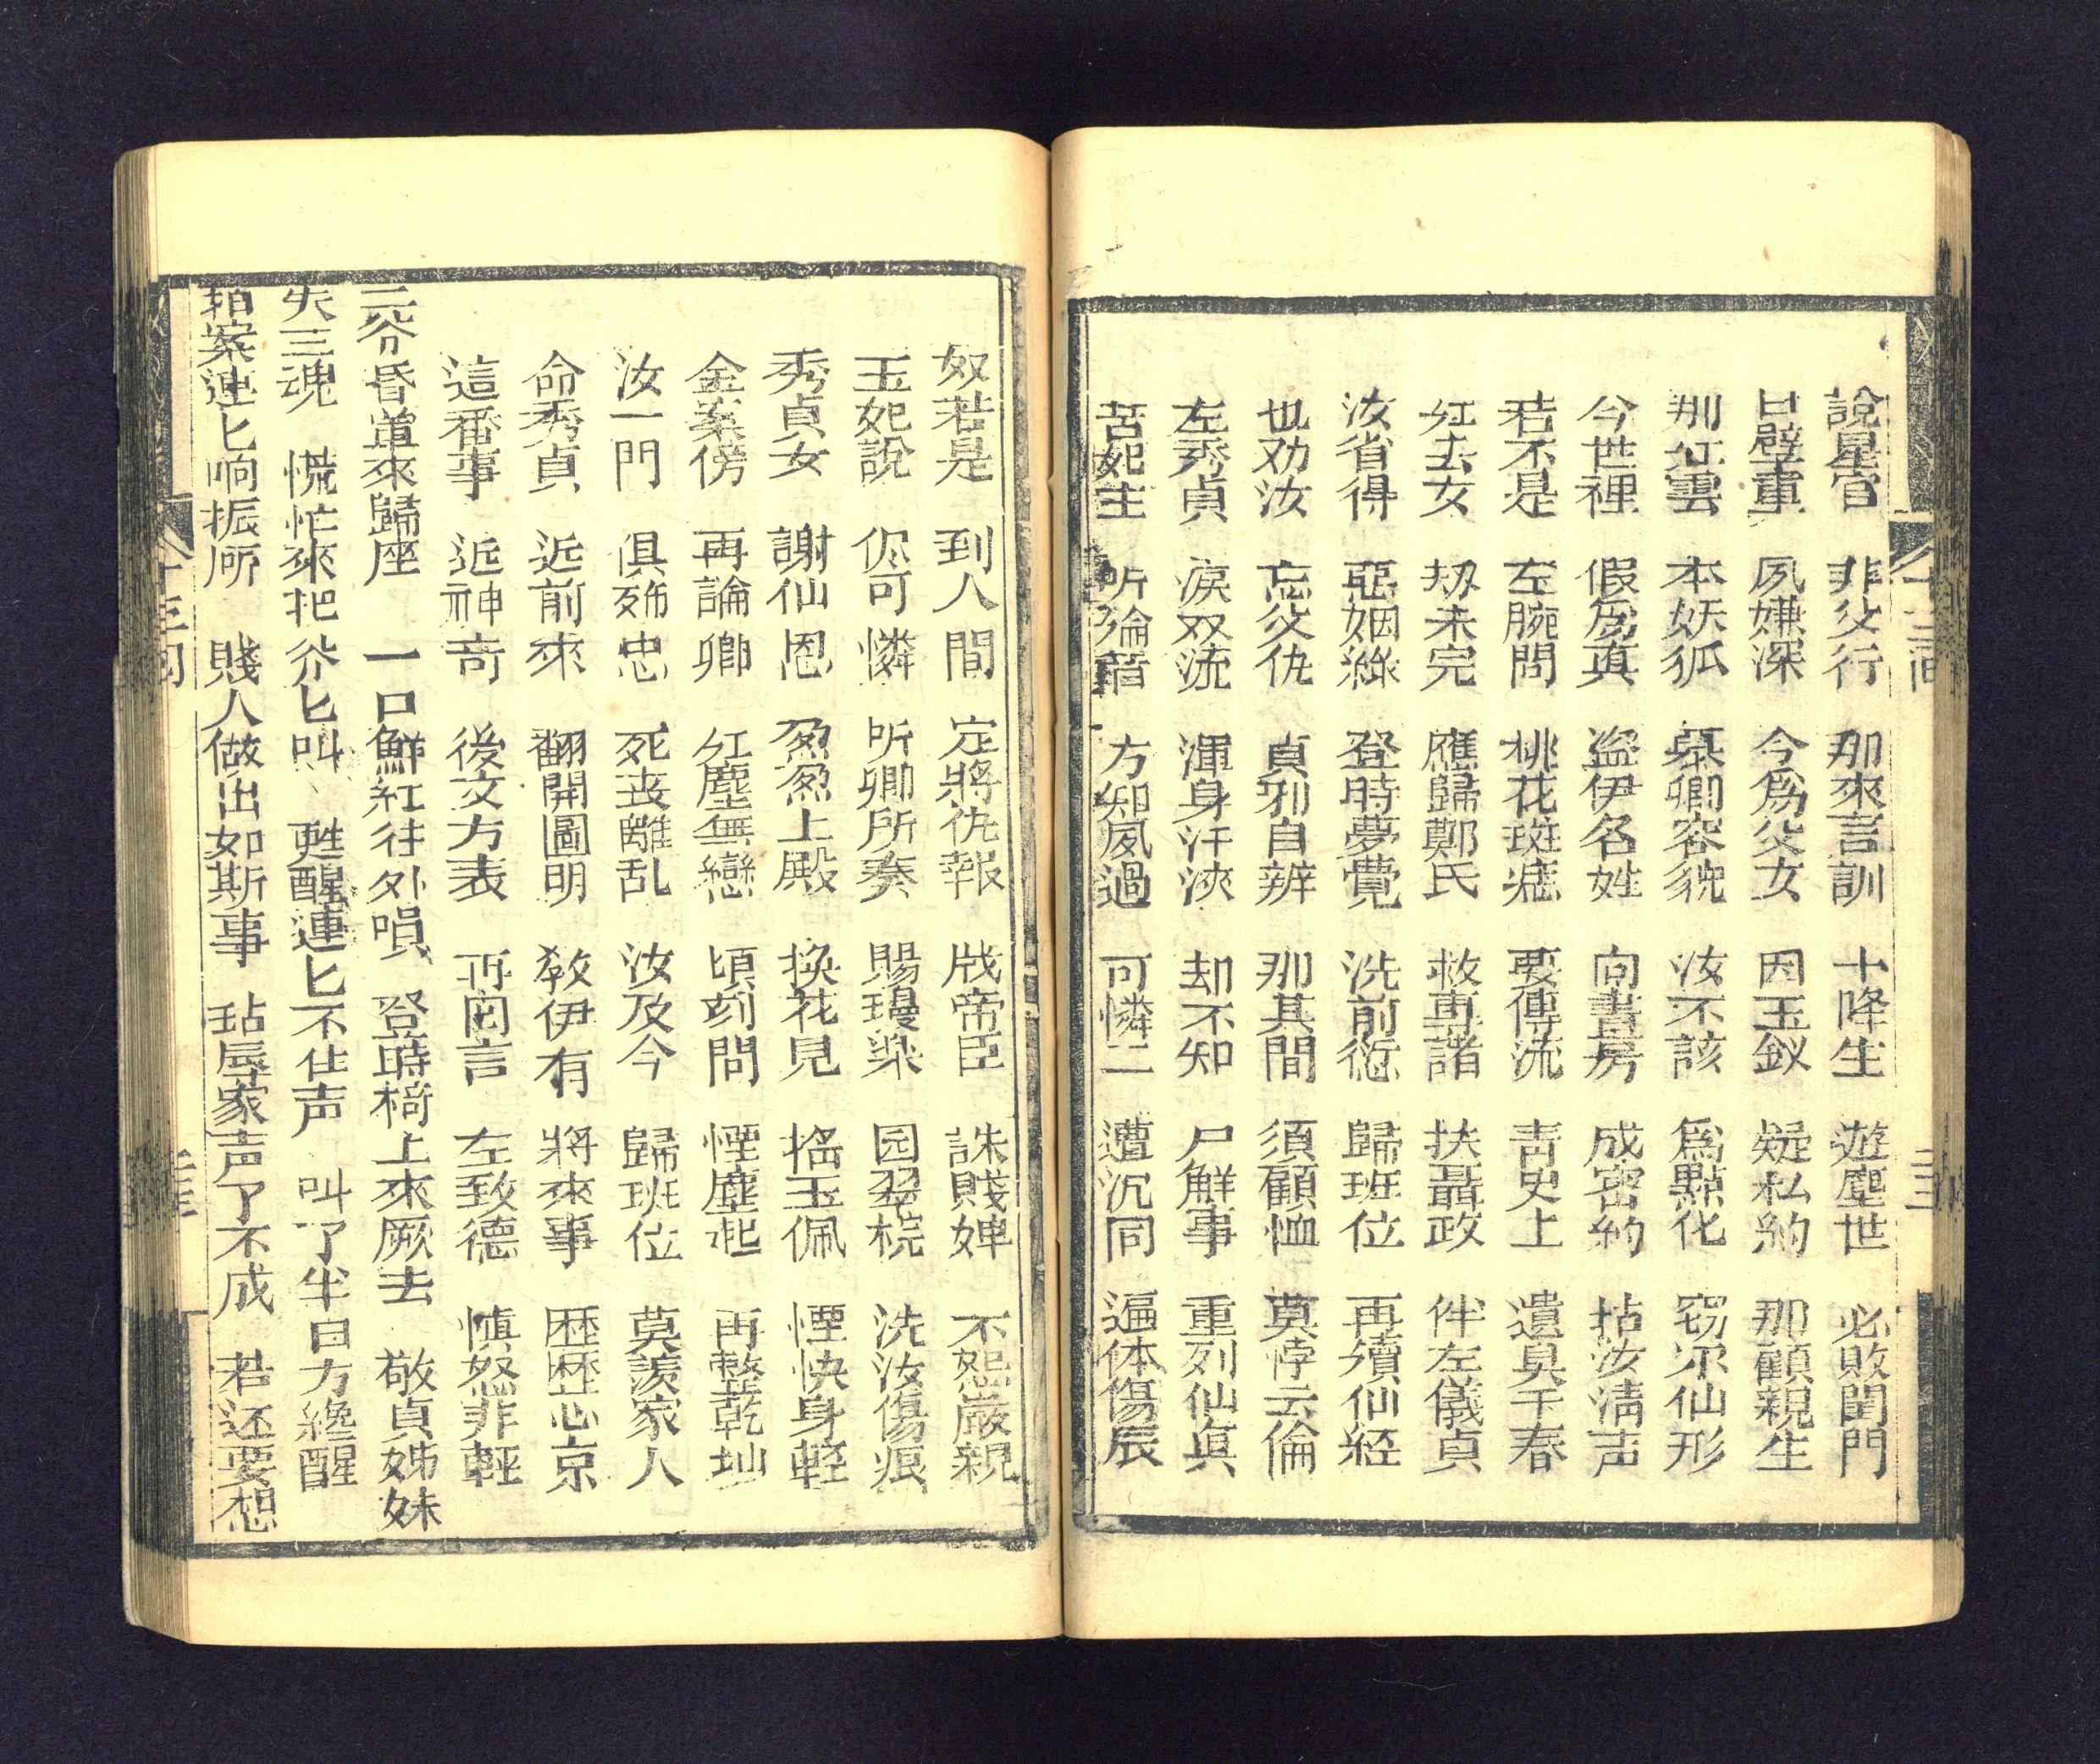 說星官 非父行 那來言訓 十降生 遊塵世 必敗閨門
呂壁重 夙嫌深 今為父女 因玉釵 疑私約 那顧親生
那紅雲 本妖狐 慕卿容貌 汝不該 為點化 窃尔仙形
今世裡 假為真 盜伊名姓 向書房 成密約 拈汝清声
若不是 左腕間 桃花斑痣 要傳流 青史上 遺臭千春
紅去女 刼未完 應歸鄭氏 救再諸 扶聶政 伴左儀貞
汝省得 惡姻緣 登時夢覺 洗前愆 歸班位 再殯仙経
也劝汝 忘父仇 貞邪自辨 那其間 須顧恤 莫悖云倫
左秀貞 淚双流 渾身汗浹 却不知 尸解事 重列仙真
苦妃主 听淪音 方知夙過 可憐二 遭沉同 遍体傷辰
十三回
奴若是 到人間 定將仇報 戕帝臣 誅賤婢 不恕嚴親
玉妃說 你可憐 听卿所奏 賜瓊漿 园翠梡 洗汝傷痕
秀貞女 謝仙恩 盈盈上殿 换花見 搖玉佩 怪快身輕
金案傍 再論卿 紅塵無戀 頃刻間 煙塵起 再整乾坤
汝一門 俱殉忠 死喪離乱 汝及今 歸班位 莫羨家人
命秀貞 近前來 翻開圖明 教伊有 將來事 歷歷心京
這番事 近神奇 後文方表 再囘言 左致德 慎怒非輕
三爷昏道來歸座 一口鮮紅往外噴 登時椅上來厥去 敬貞姊妹
失三魂 慌忙來把爷匕叫 甦醒連匕不住声 叫了半日方纔醒
拍案連匕响振所 賤人做出如斯事 玷辱家声了不成 若还要想